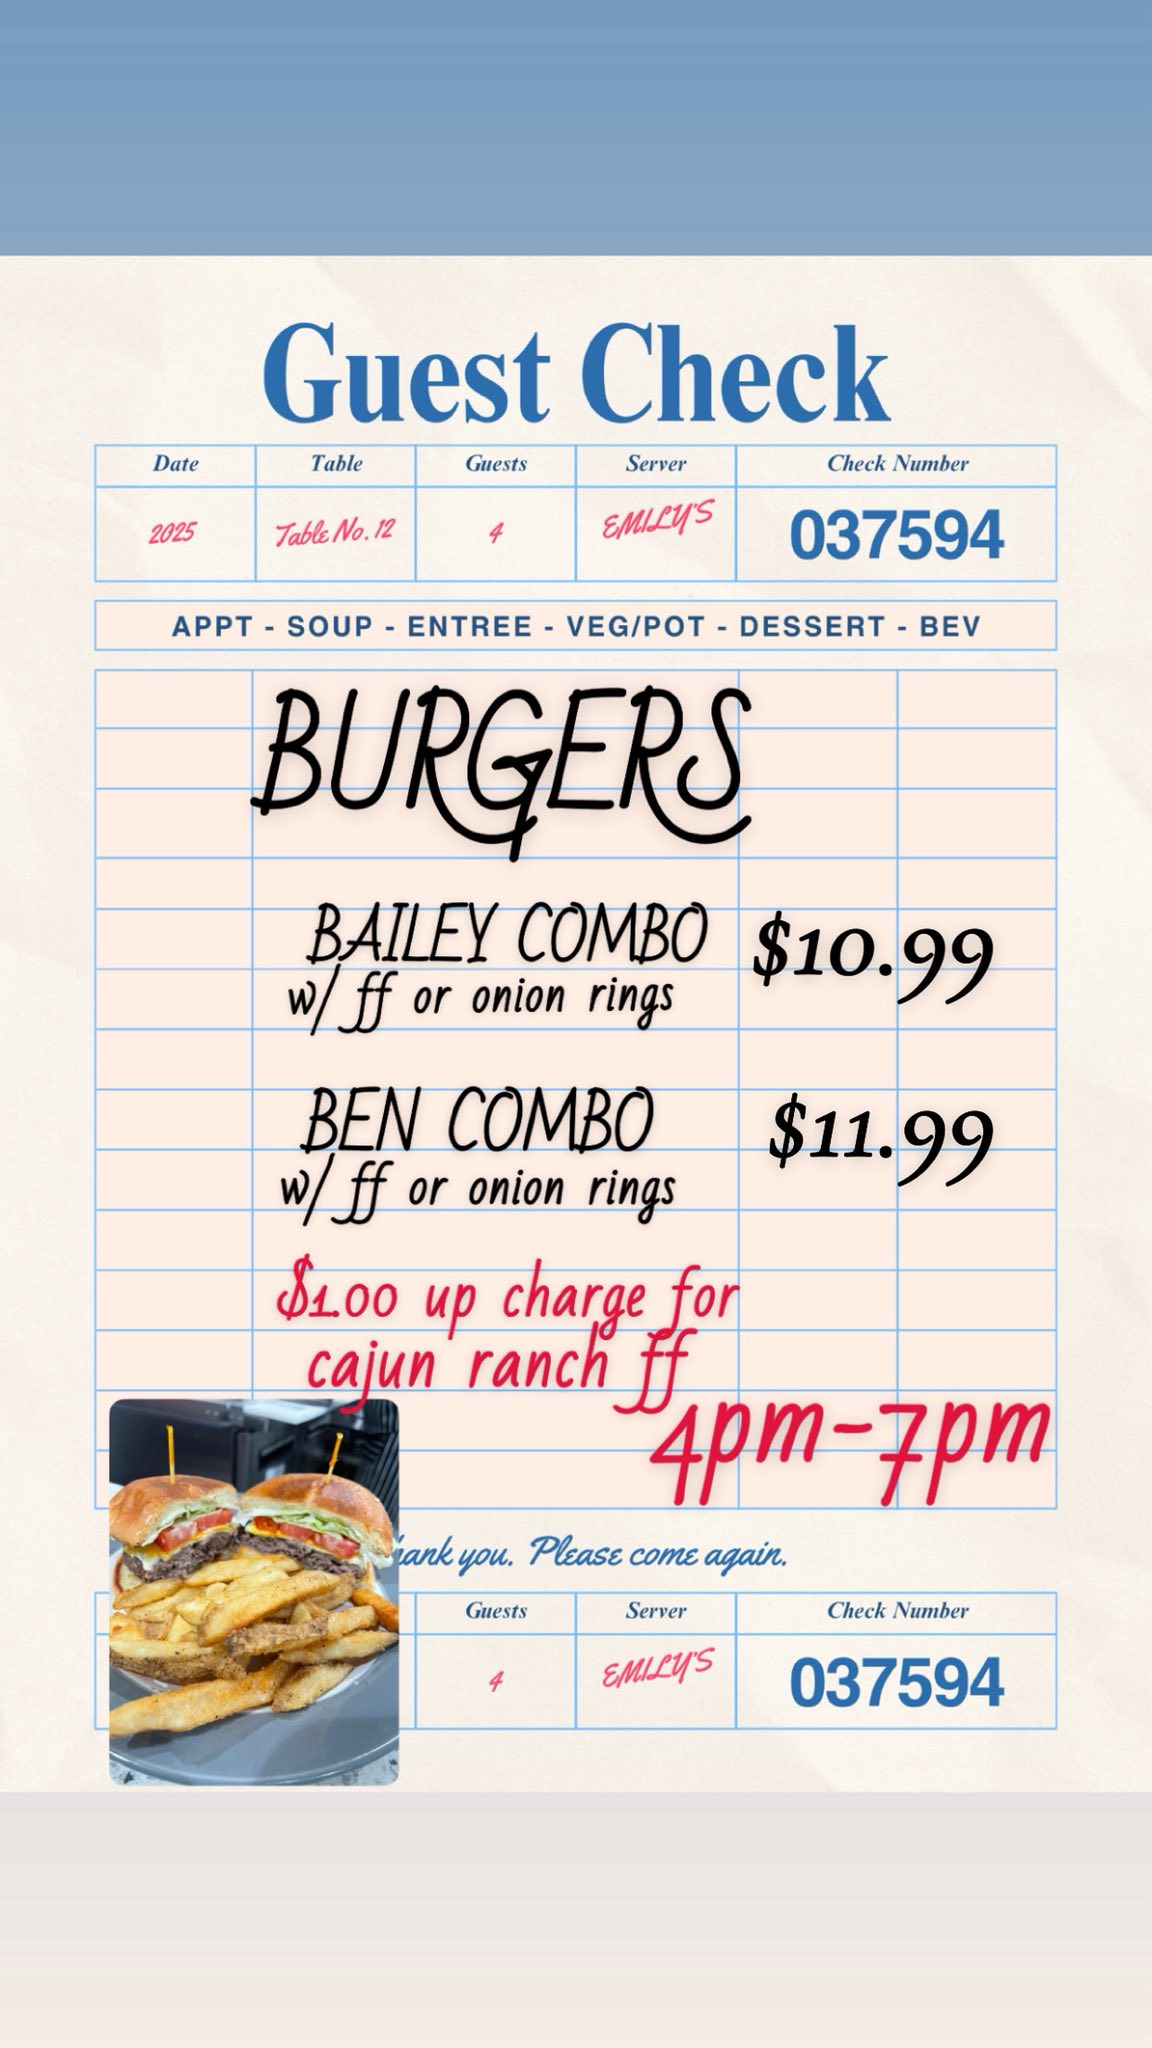 Guest Check
Date Table Guests Server Check Number
2025 Table No. 12 4 EMILY'S 037594
APPT - SOUP - ENTREE - VEG/POT - DESSERT - BEV
BURGERS
BAILEY COMBO $10.99
w/ ff or onion rings
BEN COMBO $11.99
w/ ff or onion rings
$1.00 up charge for
cajun ranch ff
4pm-7pm
hank you. Please come again.
Guests Server Check Number
4 EMILY'S 037594